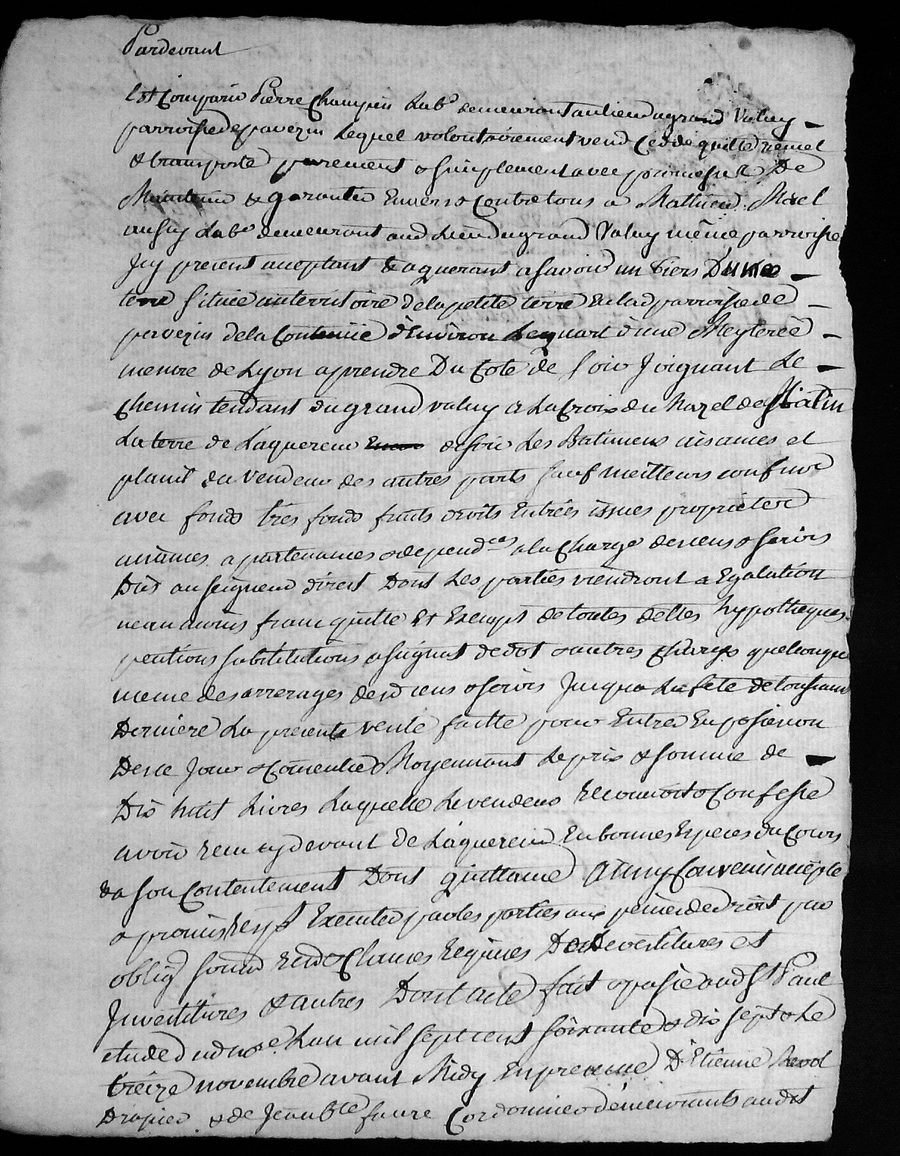 Pardevant
Est Comparu Pierre Champin Lab.r demeurant au lieu du grand Valuy
parroisse de pavezin Lequel volontairement vend Cedde quitte remet
& transporte purement & simplement avec promesse De
Maintenir & garentir Envers & Contre tous a Mathieu
aussy Lab.r demeurant aud. Lieu du grand Valuy même parroisse
Icy present acceptant & aquerant a savoir un tiers D'une
terre Située au territoire de la petite terre En lad. parroisse de
pavezin de la Contenue d'Environ Le quart d'une Meyterée
mesure de Lyon a prendre Du Coté de soir Joignant Le
Chemin tendant du grand valuy a La Croix du Mazel de Matin
La terre de L'aquereur de soir Les Batimens aisances et
du vendeur des autres parts sauf meilleurs confins
avec fonds tres fonds fruits droits Entrées issues proprietés
aisances apartenances & depend.ces a la Charge des cens & servis
Dus au seigneur direct Dont Les parties viendront a Egalation
neanmoins franc quitte Et Exempt de toutes dettes hypotheques
pentions substitutions assignat de dot & autres Charges quelconques
meme des arrerages desd. cens & servis Jusqua La fete de toussaint
Derniere La presente vente faitte pour Entrer En possession
Des ce Jour & Moyennant Le prix & somme de
Dix huit Livres Laquelle Le vendeur reconnoit & Confesse
avoir recu cy devant de L'aquereur En bonnes Especes du Cours
& a son Contentement Dont quittance Ainsy Convenu accepté
& promis Executer par les parties aux peines de Droit par
oblig. soum. Clauses Requises Devestitures et
Investitures & autres Dont acte fait & passé aud. St Paul
etude dud. no.e L'an mil sept cent soixante & dix sept & Le
treize novembre avant Midy En presence D'Etienne
Drapier & de Jean B.te faure Cordonnier demeurants aud. St